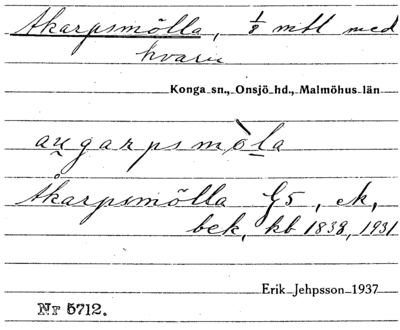 Åkarpsmölla, 1/8 mtl med
kvarn
Konga sn., Onsjö hd., Malmöhus län
au̯garpsmòla
Åkarpsmölla G5, ek,
bek, kb 1838, 1931
Erik Jehpsson 1937
Nr 5712.